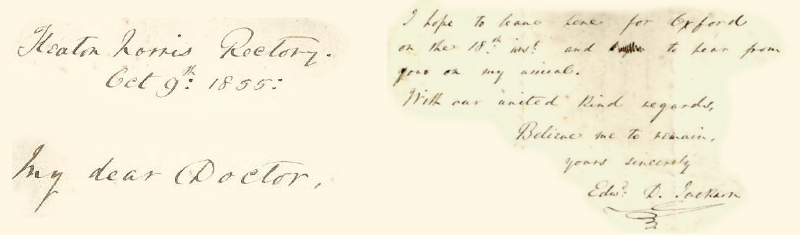 Heaton Norris Rectory.
Oct 9th 1855:
My dear Doctor,
I hope to leave here for Oxford
on the 18th inst and to hear from
you on my arrival.
With our united kind regards,
Believe me to remain,
yours sincerely
Edwd. D. Jackson